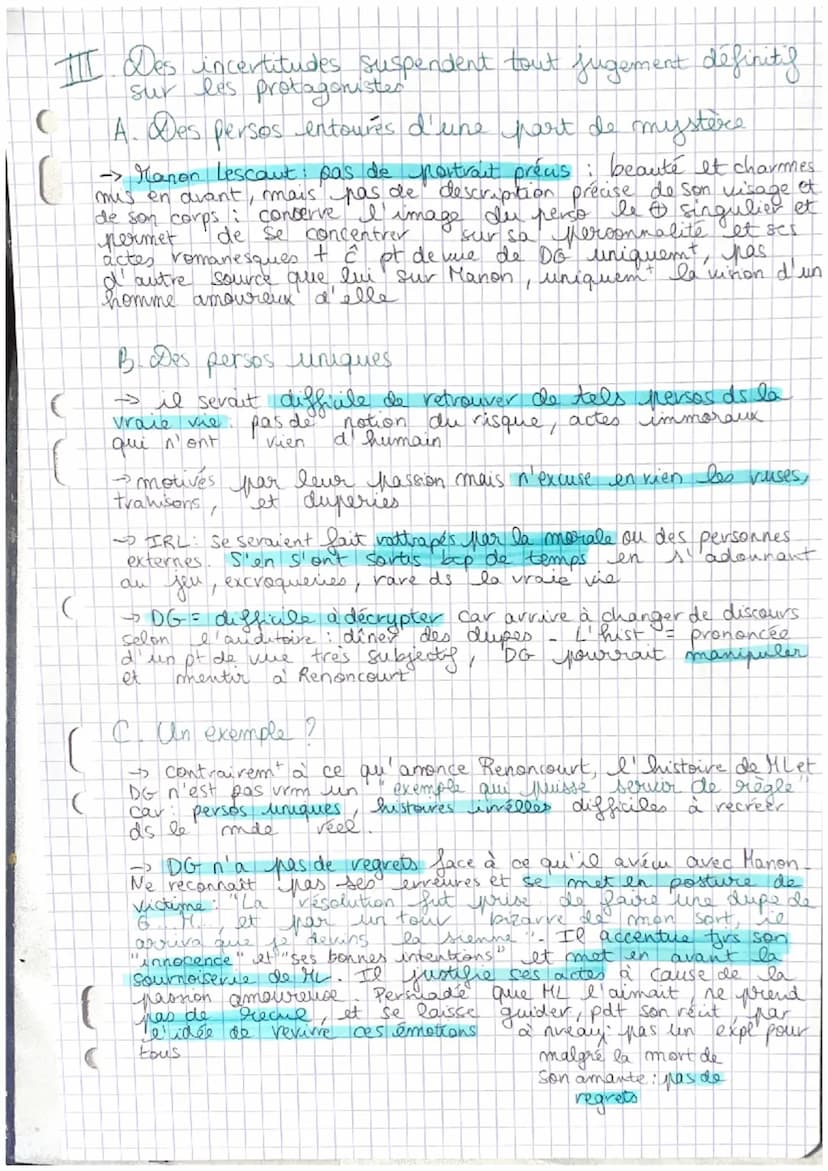 III. Des incertitudes suspendent tout jugement définitif
sur les protagonistes
A. Des persos entourés d'une part de mystère
→ Manon Lescaut : pas de portrait précis : beauté et charmes
mis en avant, mais pas de description précise de son visage et
de son corps : conserve l'image du perso le ⊕ singulier et
permet de se concentrer sur sa personnalité et ses
actes romanesques + ĉ pt de vue de DG uniquemt, pas
d'autre source que lui sur Manon, uniquemt la vision d'un
homme amoureux d'elle
B. Des persos uniques
→ il serait difficile de retrouver de tels persos ds la
vraie vie : pas de notion du risque, actes immoraux
qui n'ont rien d'humain
→ motivés par leur passion mais n'excuse en rien les ruses,
trahisons, et duperies
→ IRL : se seraient fait rattrapés par la morale ou des personnes
externes. S'en s'ont sortis bcp de temps en s'adonnant
au jeu, excroqueries, rare ds la vraie vie
→ DG = difficile à décrypter car arrive à changer de discours
selon l'auditoire : dîner des dupes - L'hist = prononcée
d'un pt de vue très subjectif, DG pourrait manipuler
et mentir à Renoncourt
C. Un exemple ?
→ contrairemt à ce qu'annonce Renoncourt, l'histoire de ML et
DG n'est pas vrm un "exemple qui puisse servir de règle"
car : persos uniques, histoires irréelles difficiles à recréer
ds le mde réel.
→ DG n'a pas de regrets face à ce qu'il a vécu avec Manon.
Ne reconnaît pas ses erreures et se met en posture de
victime : "La résolution fut prise de faire une dupe de
G... M..., et par un tour bizarre de mon sort, il
arriva que je devins la sienne". Il accentue tjrs son
"innocence" et "ses bonnes intentions" et met en avant la
sournoiserie de ML. Il justifie ses actes à cause de la
passion amoureuse. Persuadé que ML l'aimait, ne prend
pas de recul, et se laisse guider, pdt son récit, par
l'idée de revivre ces émotions à nveau : pas un expl pour
tous
malgré la mort de
son amante : pas de
regrets